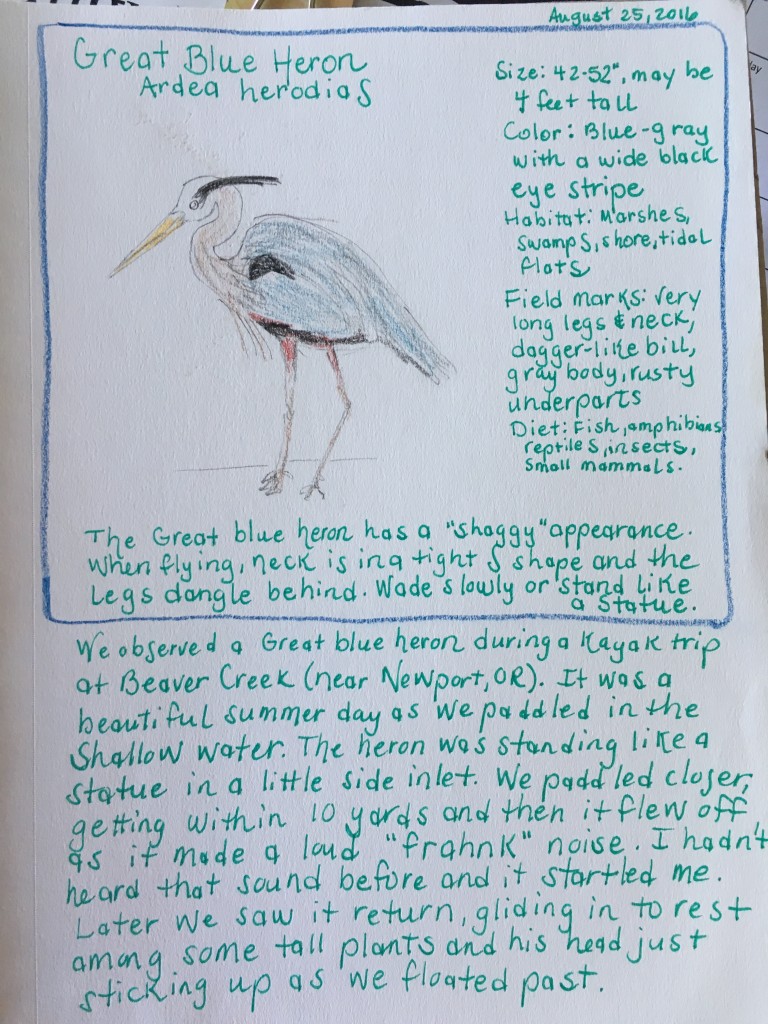 August 25, 2016
Great Blue Heron
Ardea herodias
Size: 42-52", may be
4 feet tall
Color: Blue-gray
with a wide black
eye stripe
Habitat: Marshes,
swamps, shore, tidal
flats
Field marks: very
long legs & neck,
dagger-like bill,
gray body, rusty
underparts
Diet: Fish, amphibians
reptiles, insects,
small mammals.
The Great blue heron has a "shaggy" appearance.
When flying, neck is in a tight S shape and the
Legs dangle behind. Wade slowly or stand like
a statue.
We observed a Great blue heron during a Kayak trip
at Beaver Creek (near Newport, OR). It was a
beautiful summer day as we paddled in the
Shallow water. The heron was standing like a
statue in a little side inlet. We paddled closer,
getting within 10 yards and then it flew off
as it made a loud "frahnk" noise. I hadn't
heard that sound before and it startled me.
Later we saw it return, gliding in to rest
among some tall plants and his head just
sticking up as we floated past.